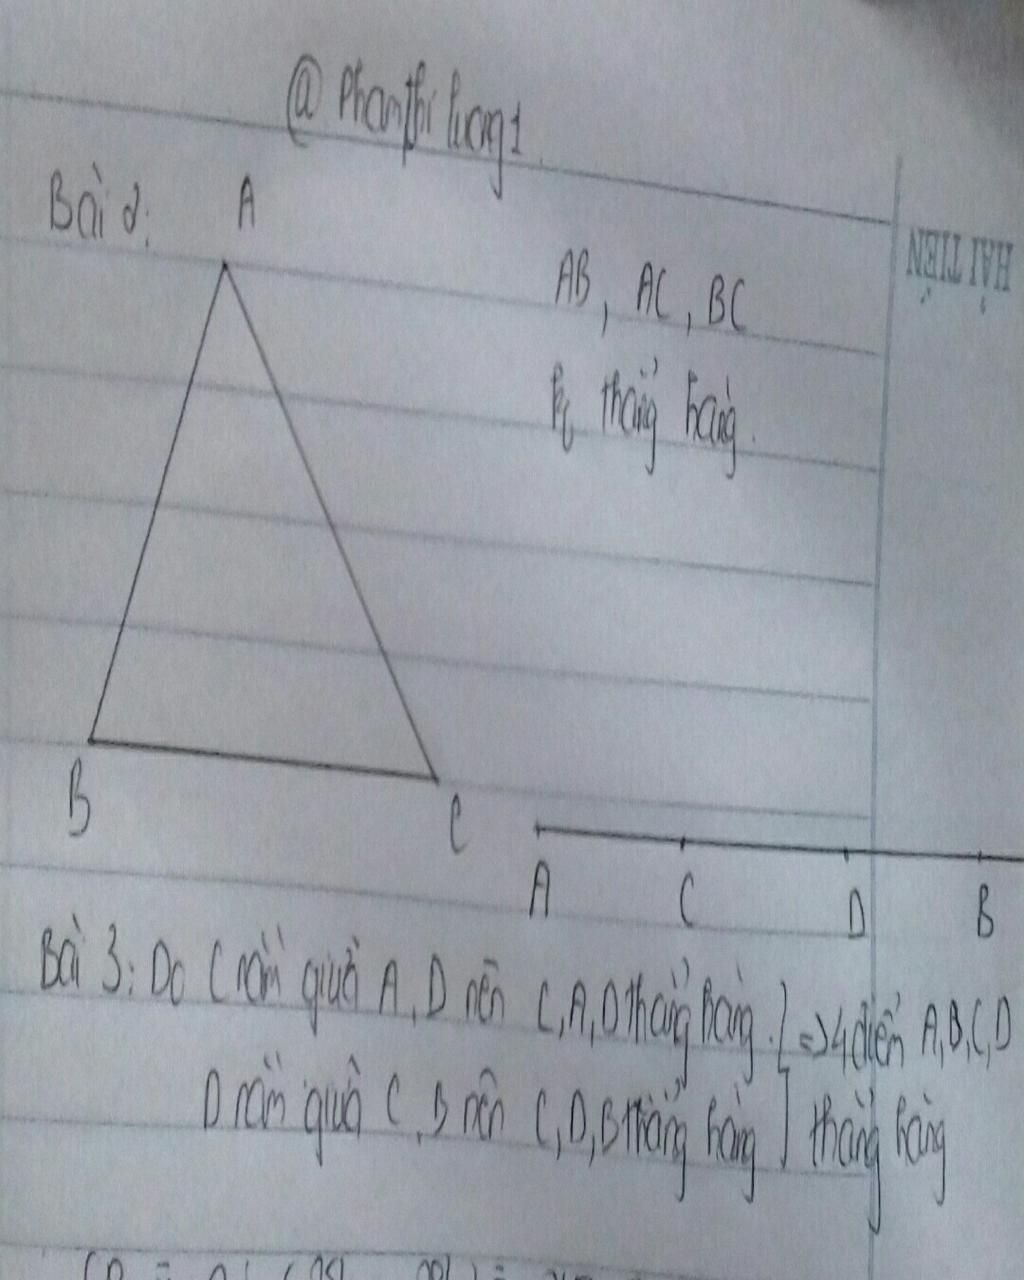 @ Phanthi luong1
Bài 2:
A
AB, AC, BC
thẳng hàng.
B
C
A C D B
Bài 3: Do C nằm giữa A, D nên C, A, D thẳng hàng. } => 4 điểm A, B, C, D
D nằm giữa C, B nên C, D, B thẳng hàng thẳng hàng
HẢI TIẾN